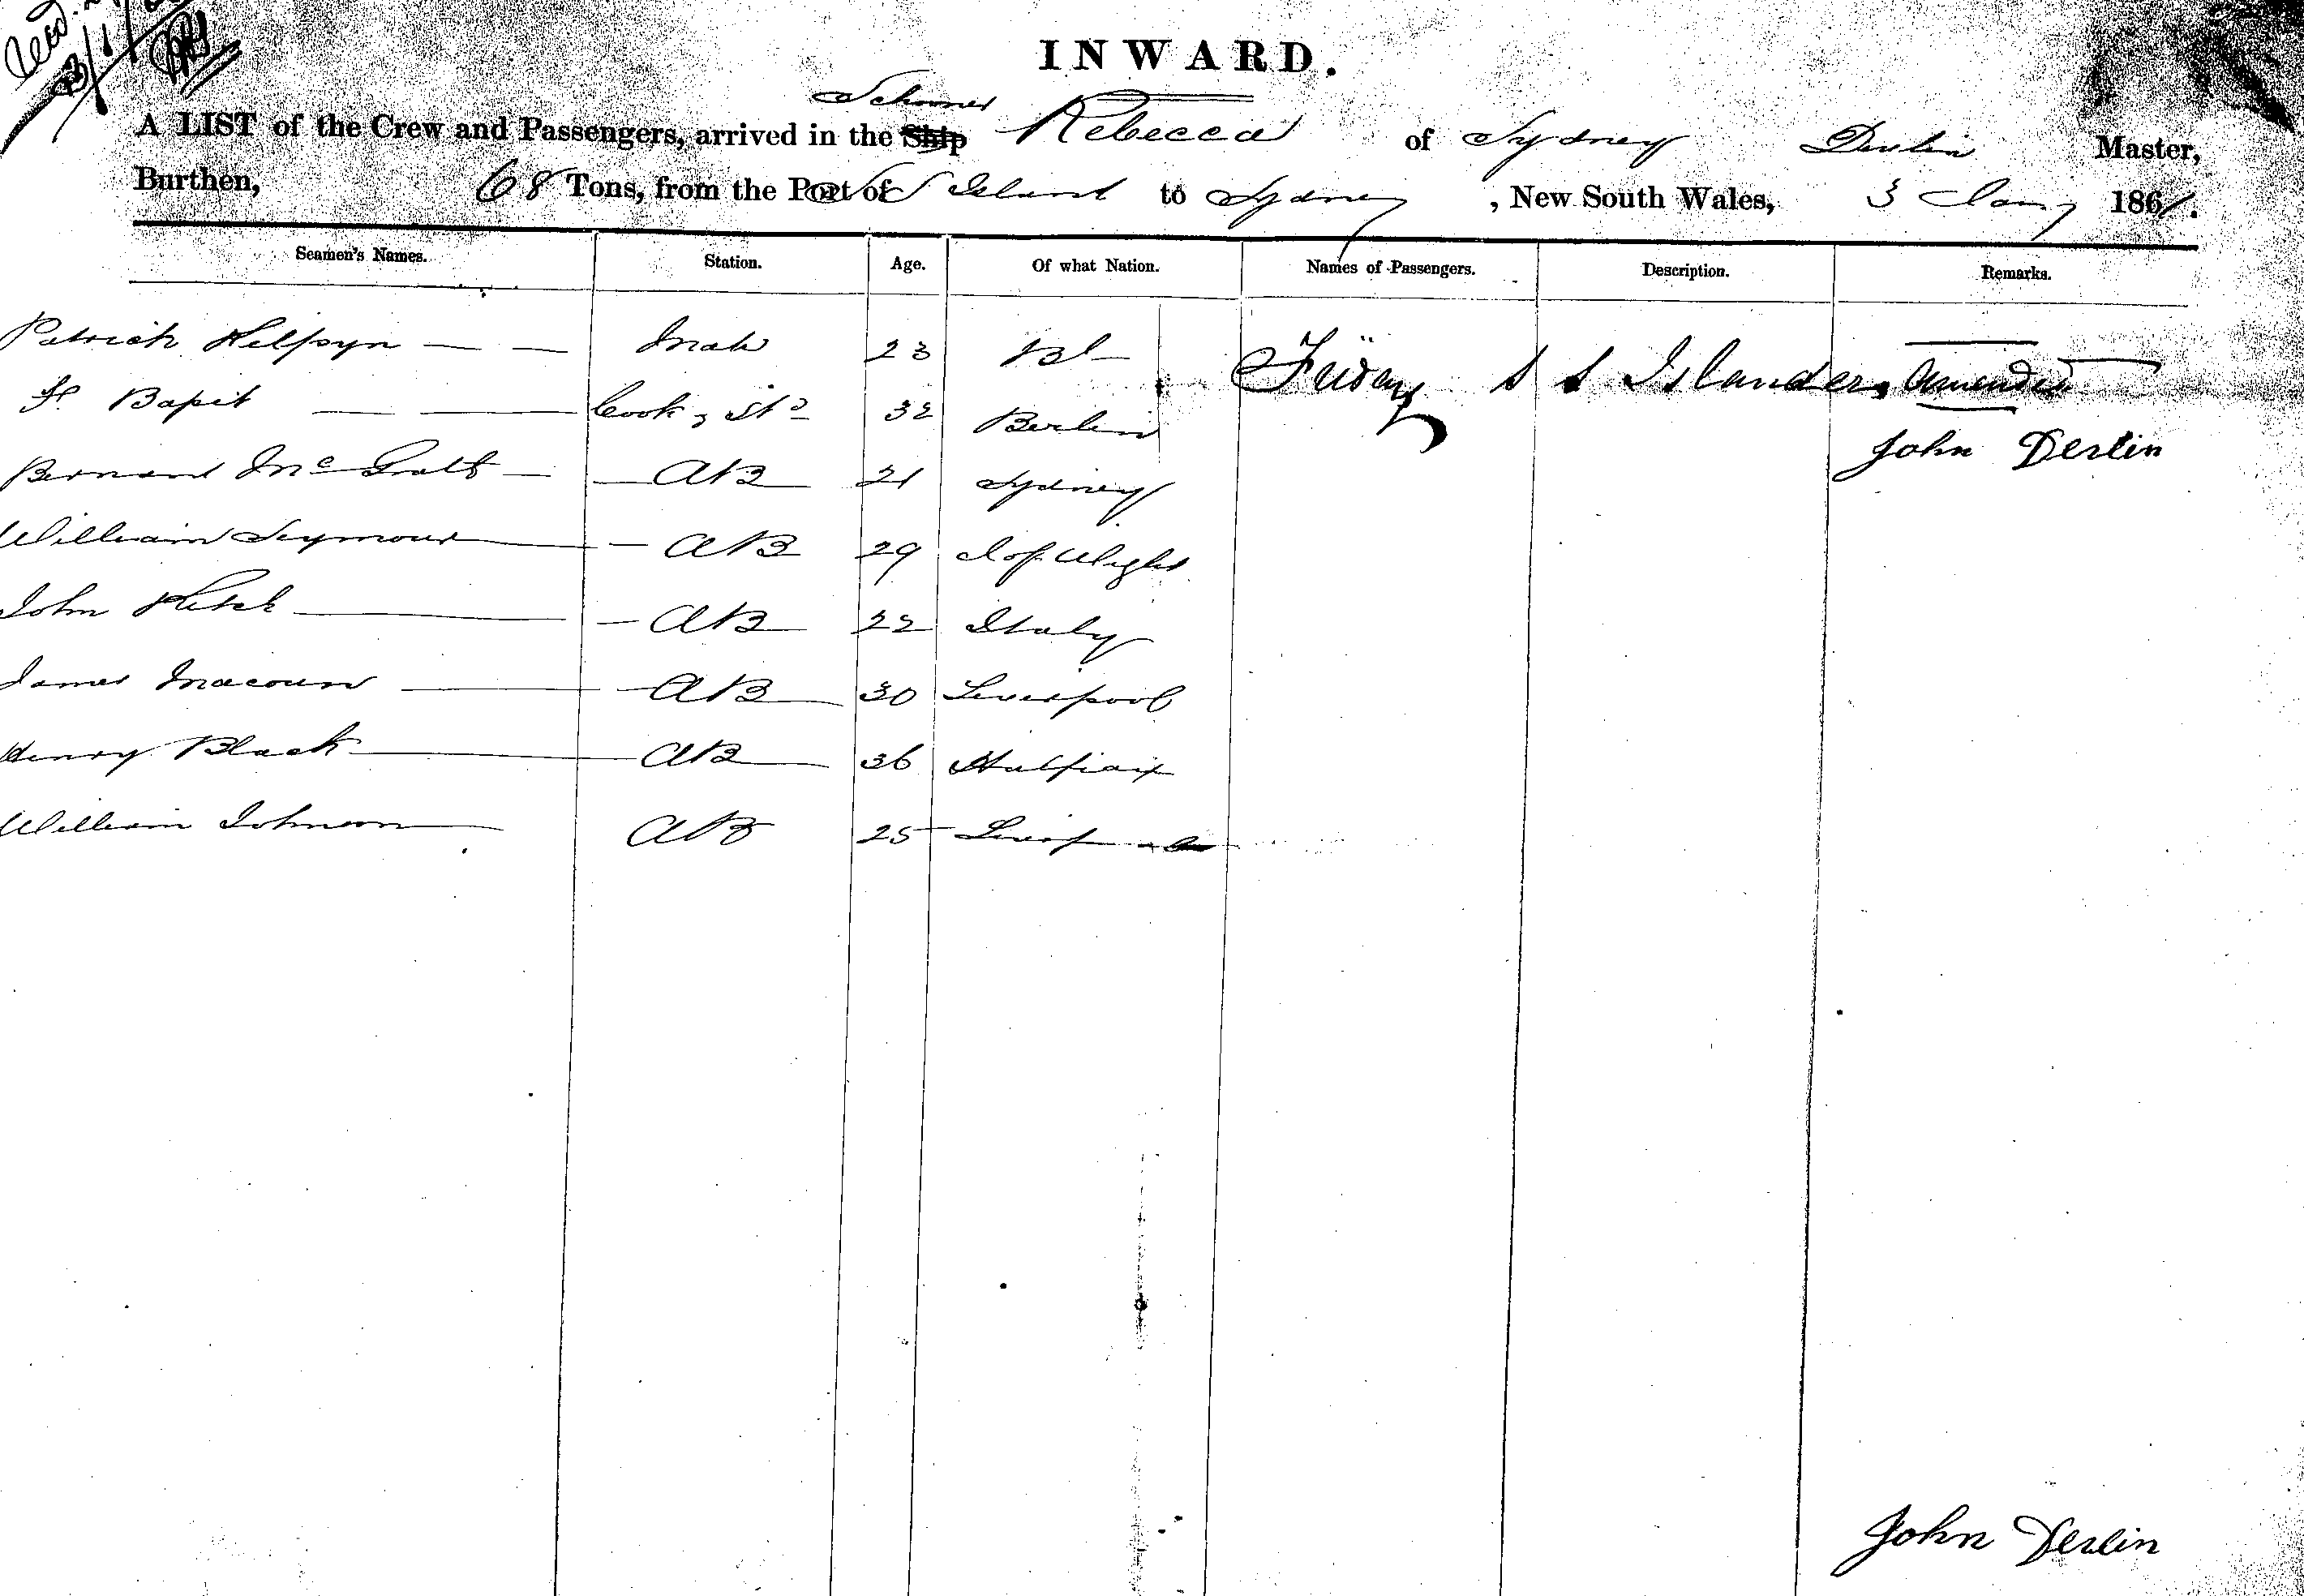 INWARD.
Schooner
A LIST of the Crew and Passengers, arrived in the Ship Rebecca of Sydney Devlin Master,
Burthen, 68 Tons, from the Port of S S Island to Sydney, New South Wales, 3 Jany 1861.
Seamen's Names. Station. Age. Of what Nation. Names of Passengers. Description. Remarks.
Patrick Mate 23 Friday S S Islander, amended
Bapit Cook & Std 32 Berlin
John Devlin
Bernard McGrath AB 21 Sydney
William Seymour AB 29 I of Wight
John AB 22 Italy
James Macoun AB 30 Liverpool
Henry Black AB 36 Halfiax
William Johnson AB 25
John Devlin